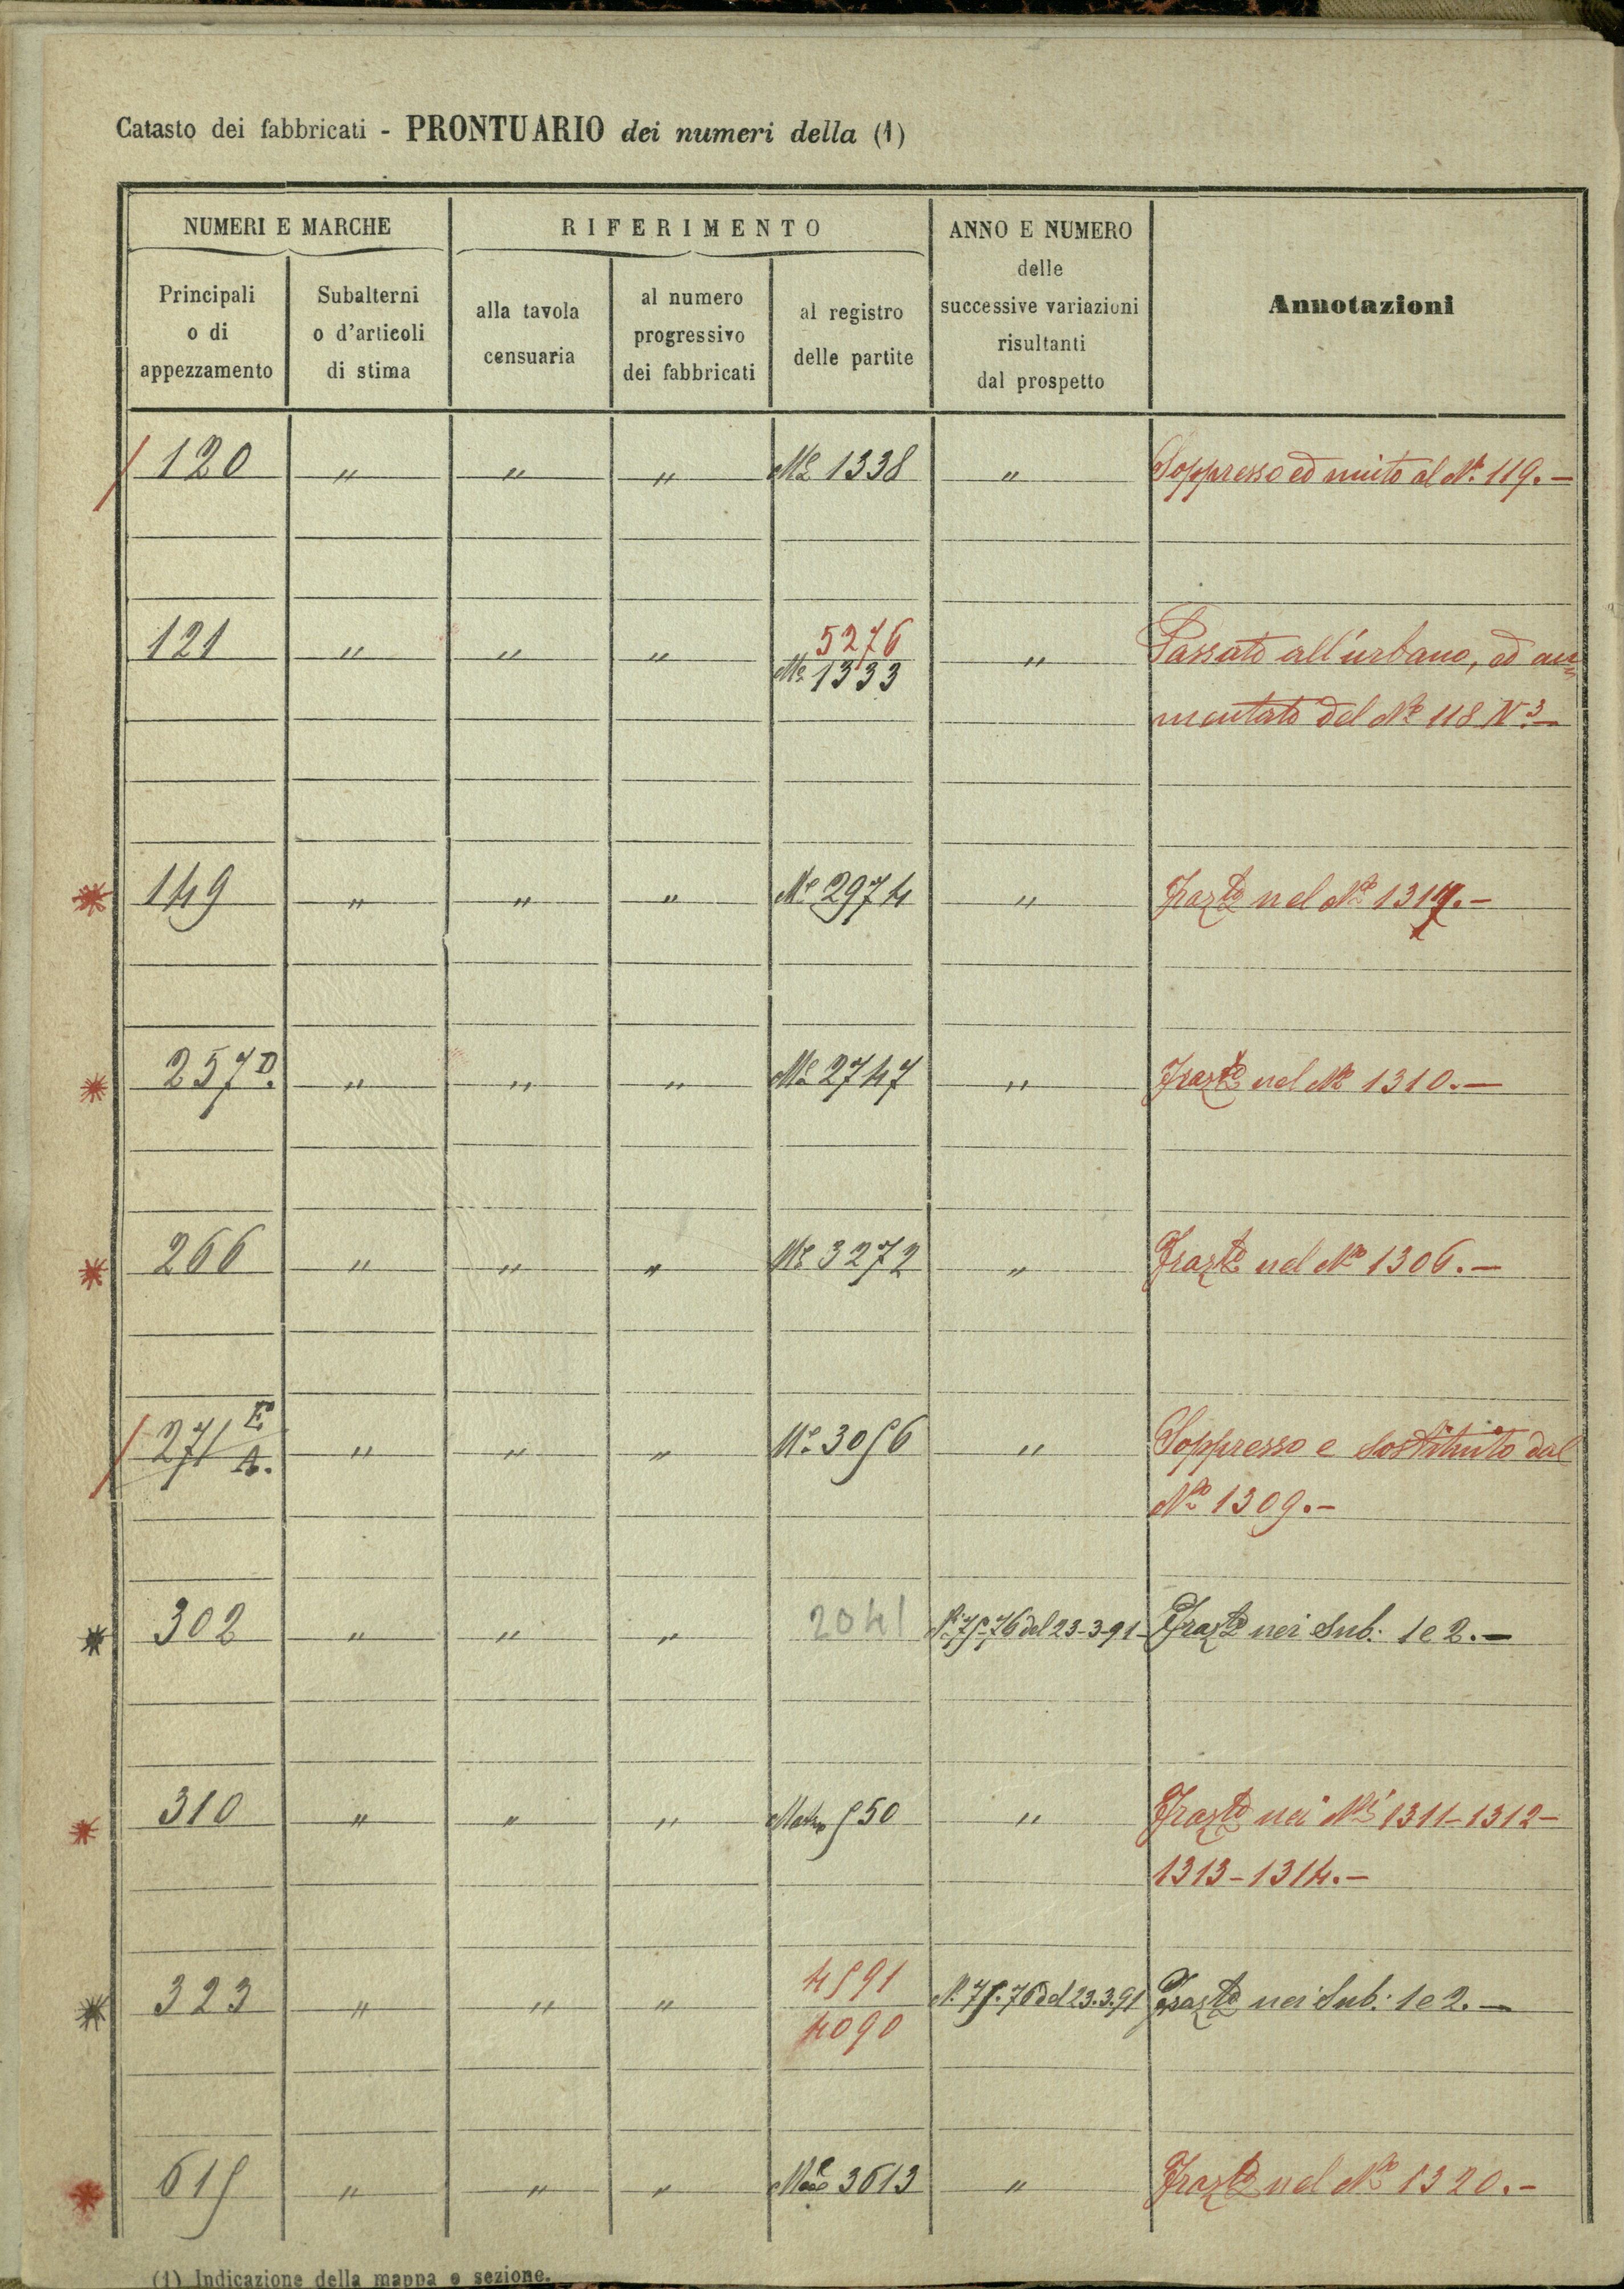 Catasto dei fabbricati - PRONTUARIO dei numeri della (1)
NUMERI E MARCHE
RIFERIMENTO
ANNO E NUMERO
delle
successive variazioni
risultanti
dal prospetto
Annotazioni
Principali
o di
appezzamento
Subalterni
o d'articoli
di stima
alla tavola
censuaria
al numero
progressivo
dei fabbricati
al registro
delle partite
120 " " " Me 1338 " Soppresso ed unito al No. 119.-
5276
121 " " " Me 1333 " Passato all'urbano, ed au=
mentato del No 118 N3-
149 " " " Me 2974 " Frazto nel No 1317.-
257 D. " " " Me 2747 " Frazto nel No 1310.-
266 " " " Me 3272 " Frazto nel No 1306.-
271 E/A. " " " Me 3056 " Soppresso e sostituito dal
No 1309.-
302 " " " 2041 N. 75-76 del 23-3-91 Frazto nei Sub: 1 e 2.-
310 " " " 550 " Frazto nei Ni 1311-1312-
1313-1314.-
4591
323 " " " N. 75-76 del 23.3.91 Frazto nei Sub: 1 e 2.-
4090
615 " " " 3613 " Frazto nel No 1320.-
(1) Indicazione della mappa e sezione.